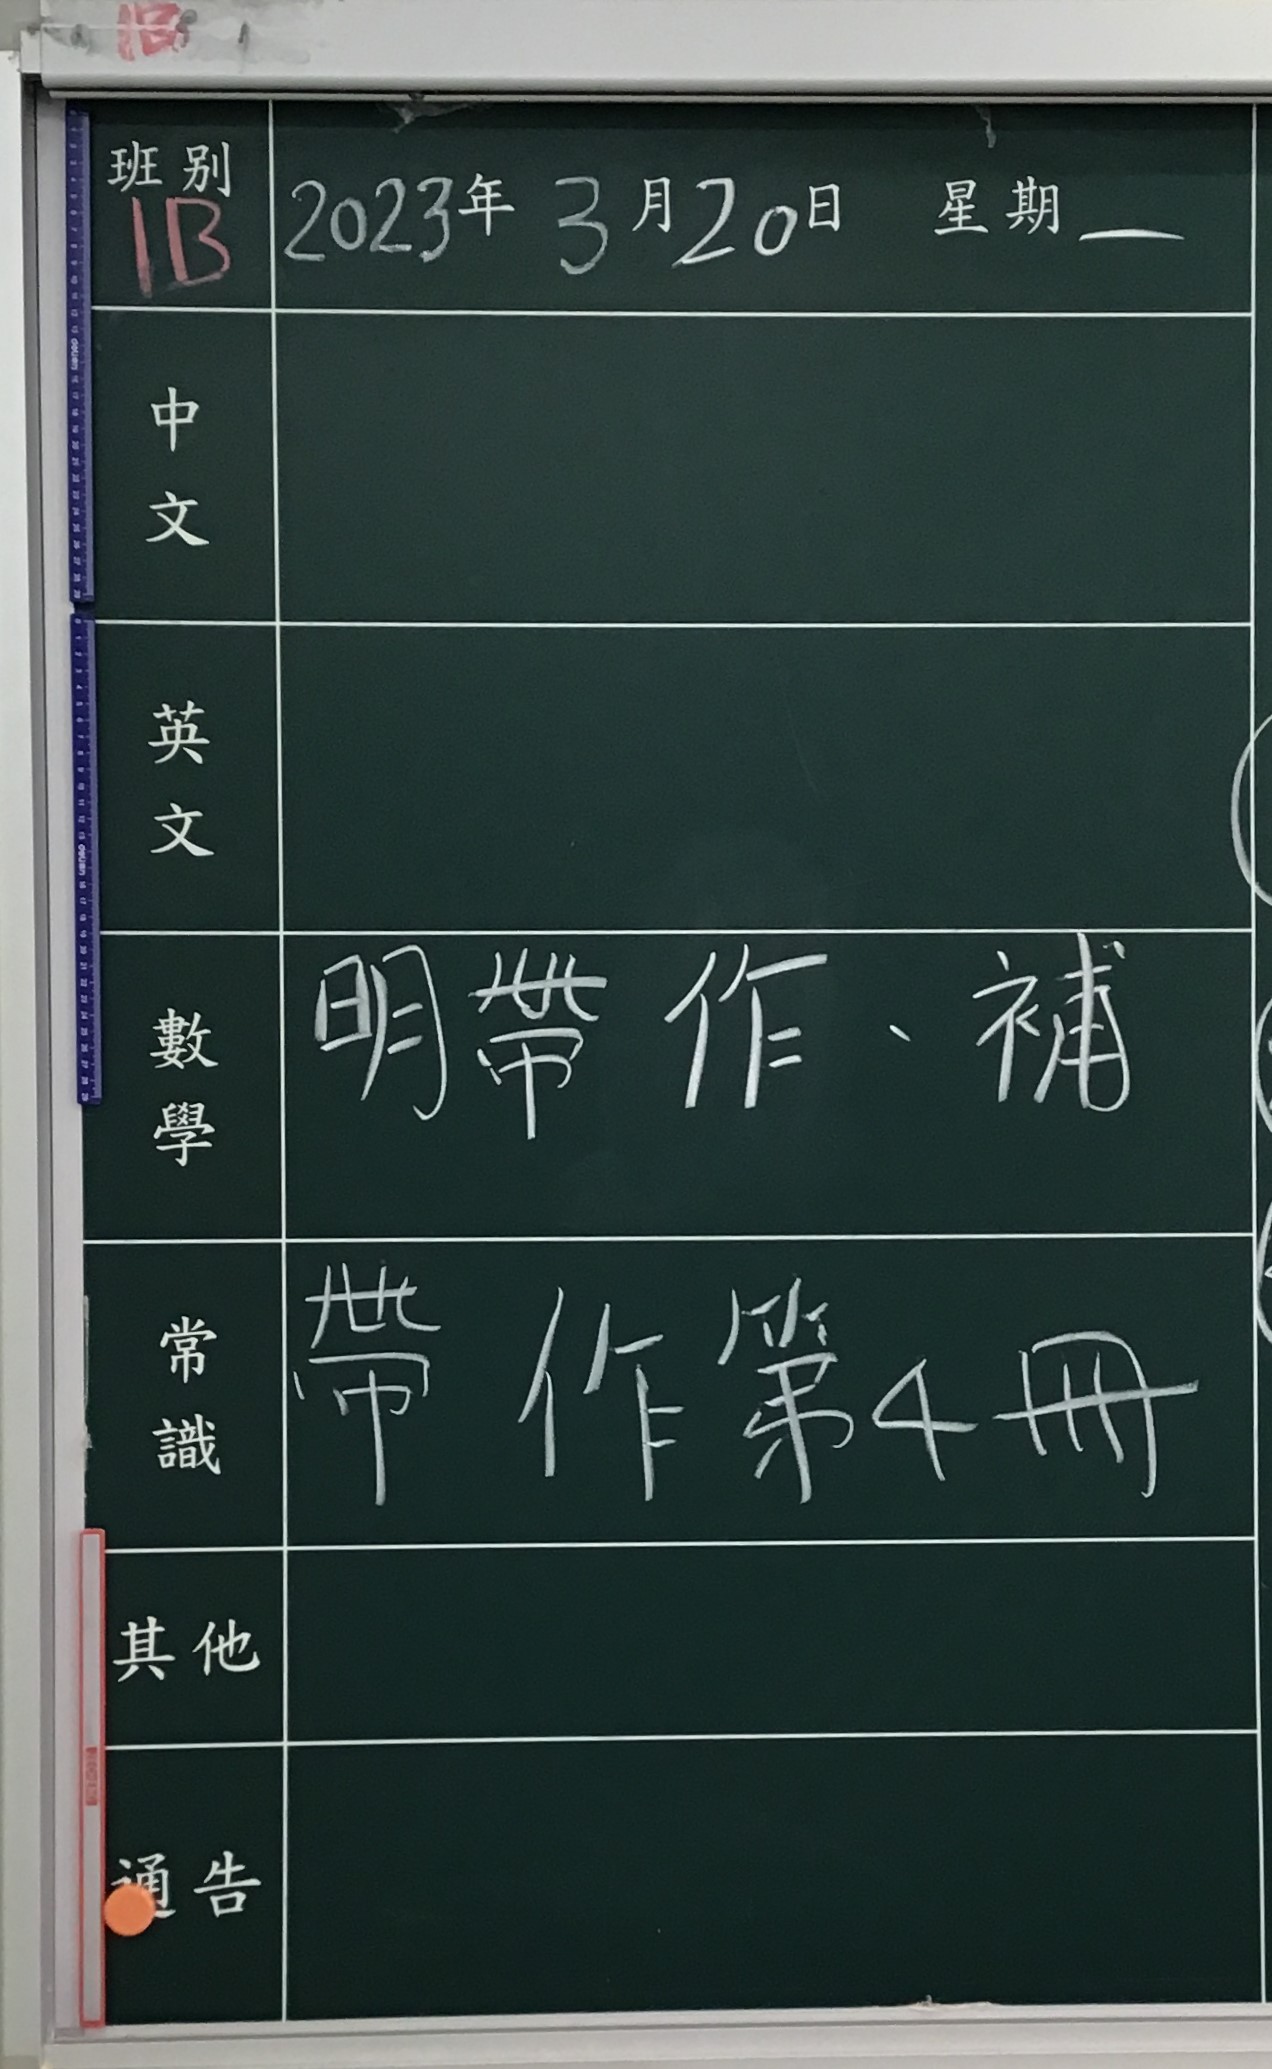 1B
班別
1B
2023年3月20日 星期一
中文
英文
數學
明帶作、補
常識
帶作第4冊
其他
通告